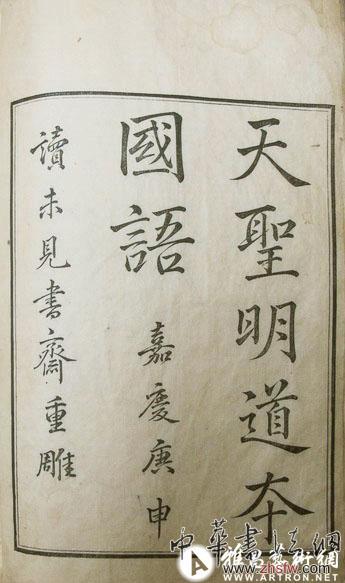 天聖明道本
國語
嘉慶庚申
讀未見書齋重雕
中華書法網
www.zhsfw.com
雅昌藝術網
WWW.ARTRON.NET